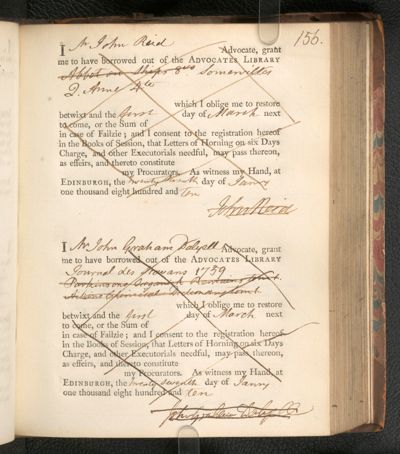 156.
I Mr John Reid Advocate, grant
me to have borrowed out of the ADVOCATES LIBRARY
Abbot on Ships 8vo Somerville's
Q. Anne 4to
which I oblige me to restore
betwixt and the first day of March next
to come, or the Sum of
in case of Failzie; and I consent to the registration hereof
in the Books of Session, that Letters of Horning on six Days
Charge, and other Executorials needful, may pass thereon,
as effeirs, and thereto constitute
my Procurators. As witness my Hand, at
EDINBURGH, the twenty seventh day of Janry
one thousand eight hundred and ten
John Reid
I Mr John Graham Dalyell Advocate, grant
me to have borrowed out of the ADVOCATES LIBRARY
Journal des Scavans 1759
Parkinsons Organick Remains
which I oblige me to restore
betwixt and the first day of March next
to come, or the Sum of
in case of Failzie; and I consent to the registration hereof
in the Books of Session, that Letters of Horning on six Days
Charge, and other Executorials needful, may pass thereon,
as effeirs, and thereto constitute
my Procurators. As witness my Hand, at
EDINBURGH, the twenty seventh day of Janry
one thousand eight hundred and ten
John Graham Dalyell